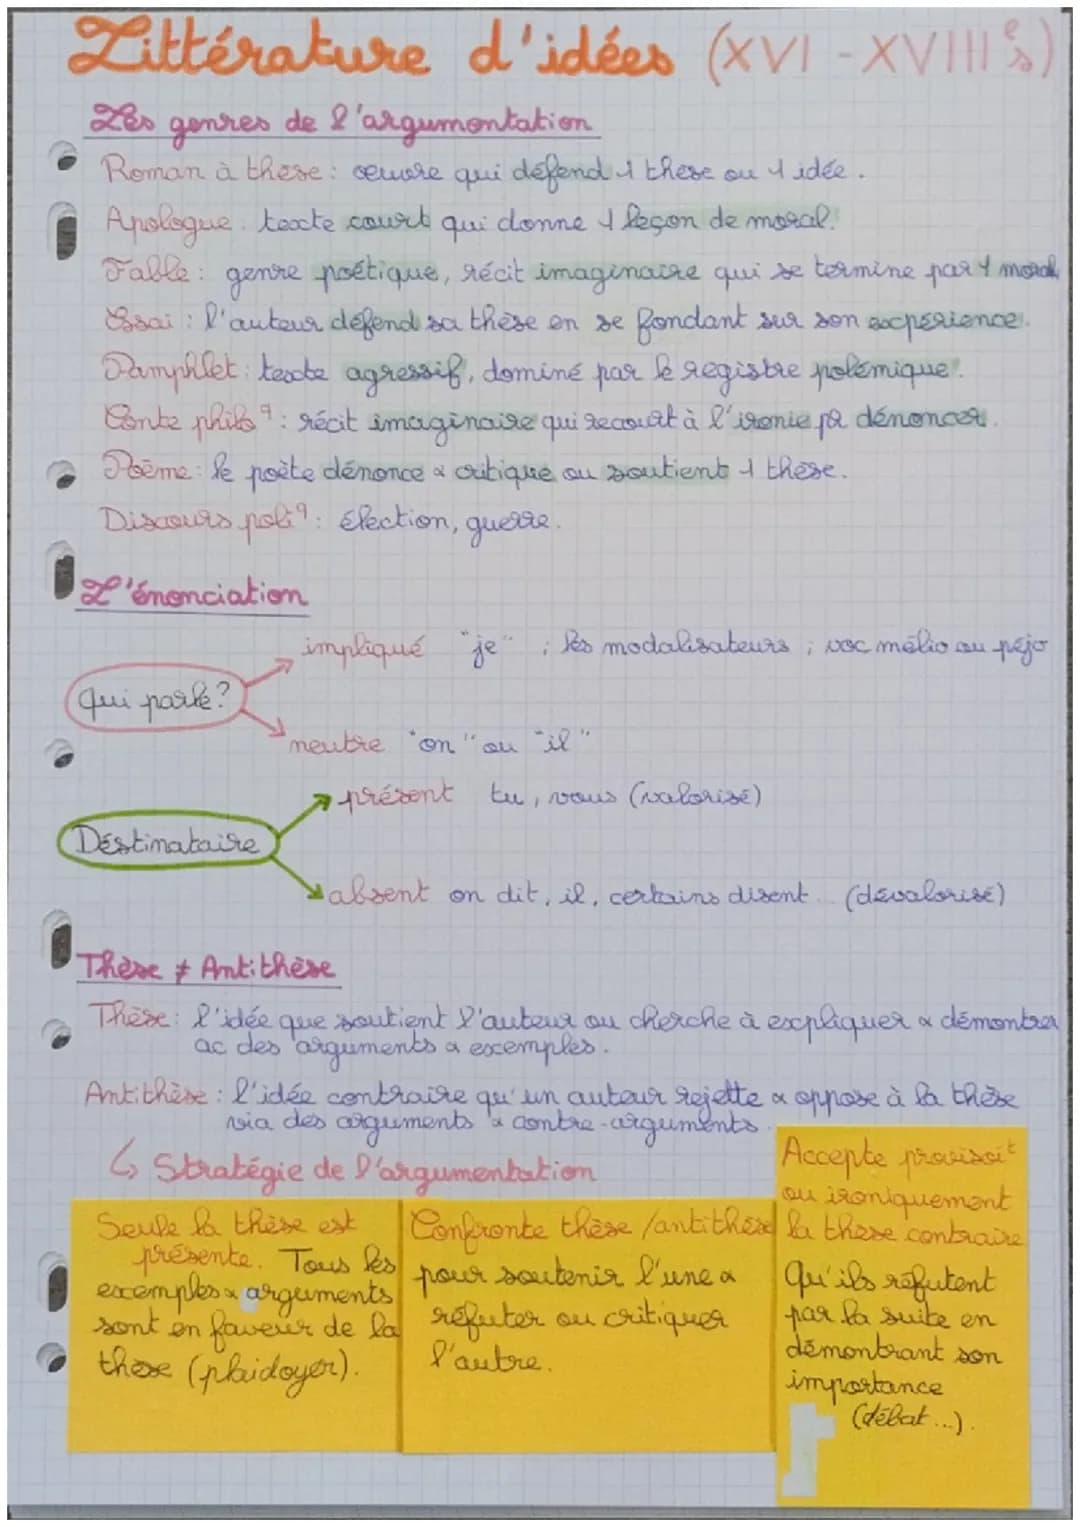 Littérature d'idées (XVI - XVIII es)
Les genres de l'argumentation
Roman à thèse : œuvre qui défend 1 thèse ou 1 idée.
Apologue : texte court qui donne 1 leçon de moral.
Fable : genre poétique, récit imaginaire qui se termine par 1 moral
Essai : l'auteur défend sa thèse en se fondant sur son expérience.
Pamphlet : texte agressif, dominé par le registre polémique.
Conte philo q : récit imaginaire qui recourt à l'ironie pr dénoncer.
Poème : le poète dénonce & critique ou soutient 1 thèse.
Discours poli q : élection, guerre.
L'énonciation
impliqué "je" ; les modalisateurs ; voc mélio ou péjo
Qui parle?
neutre "on" ou "il"
présent tu, vous (valorisé)
Déstinataire
absent on dit, il, certains disent... (dévalorisé)
Thèse ≠ Antithèse
Thèse : l'idée que soutient l'auteur ou cherche à expliquer & démontrer
ac des arguments & exemples.
Antithèse : l'idée contraire qu'un auteur rejette & oppose à la thèse
via des arguments & contre-arguments.
↳ Stratégie de l'argumentation
Seule la thèse est
présente. Tous les
exemples & arguments
sont en faveur de la
thèse (plaidoyer).
Confronte thèse/antithèse
pour soutenir l'une &
réfuter ou critiquer
l'autre.
Accepte provisoit
ou ironiquement
la thèse contraire
Qu'ils réfutent
par la suite en
démontrant son
importance
(débat...).